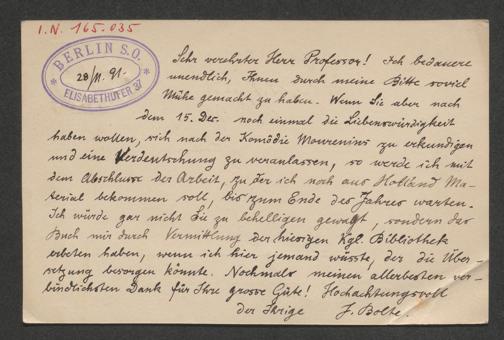 I. N. 165.035
BERLIN S.O.
28/11. 91.
ELISABETHUFER 37
Sehr verehrter Herr Professor! Ich bedauere
unendlich, Ihnen durch meine Bitte soviel
Mühe gemacht zu haben. Wenn Sie aber nach
dem 15. Dec. noch einmal die Liebenswürdigkeit
haben wollen, sich nach der Komödie Mourenins zu erkundigen
und eine Verdeutschung zu veranlassen, so werde ich mit
dem Abschlusse der Arbeit, zu der ich noch aus Holland Ma-
terial bekommen soll, bis zum Ende des Jahres warten.
Ich würde gar nicht Sie zu behelligen gewagt, sondern das
Buch mir durch Vermittlung der hiesigen Kgl. Bibliothek
erbeten haben, wenn ich hier jemand wüsste, der die Über-
setzung besorgen könnte. Nochmals meinen allerbesten ver-
bindlichsten Dank für Ihre grosse Güte! Hochachtungsvoll
der Ihrige J. Bolte.